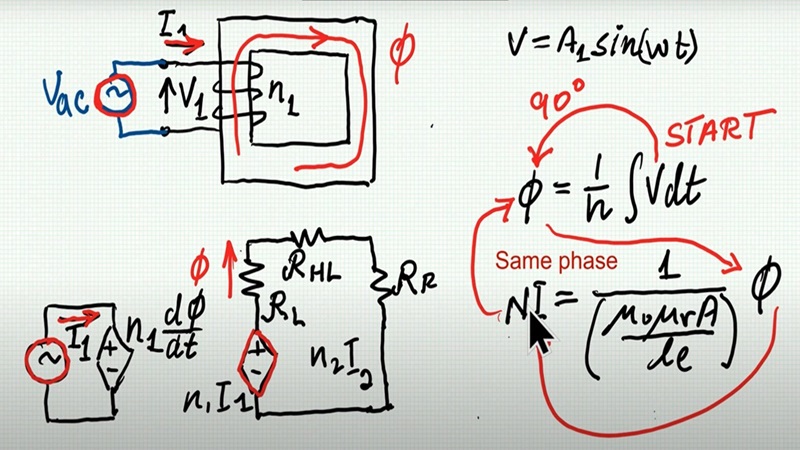 I1
Vac
V1
n1
ϕ
V = A1 sin(wt)
90°
START
ϕ = 1/n ∫Vdt
Same phase
NI = 1/(μoμrA/le) ϕ
ϕ
RHL
RL
RR
I1
n1 dϕ/dt
n1I1
n2I2